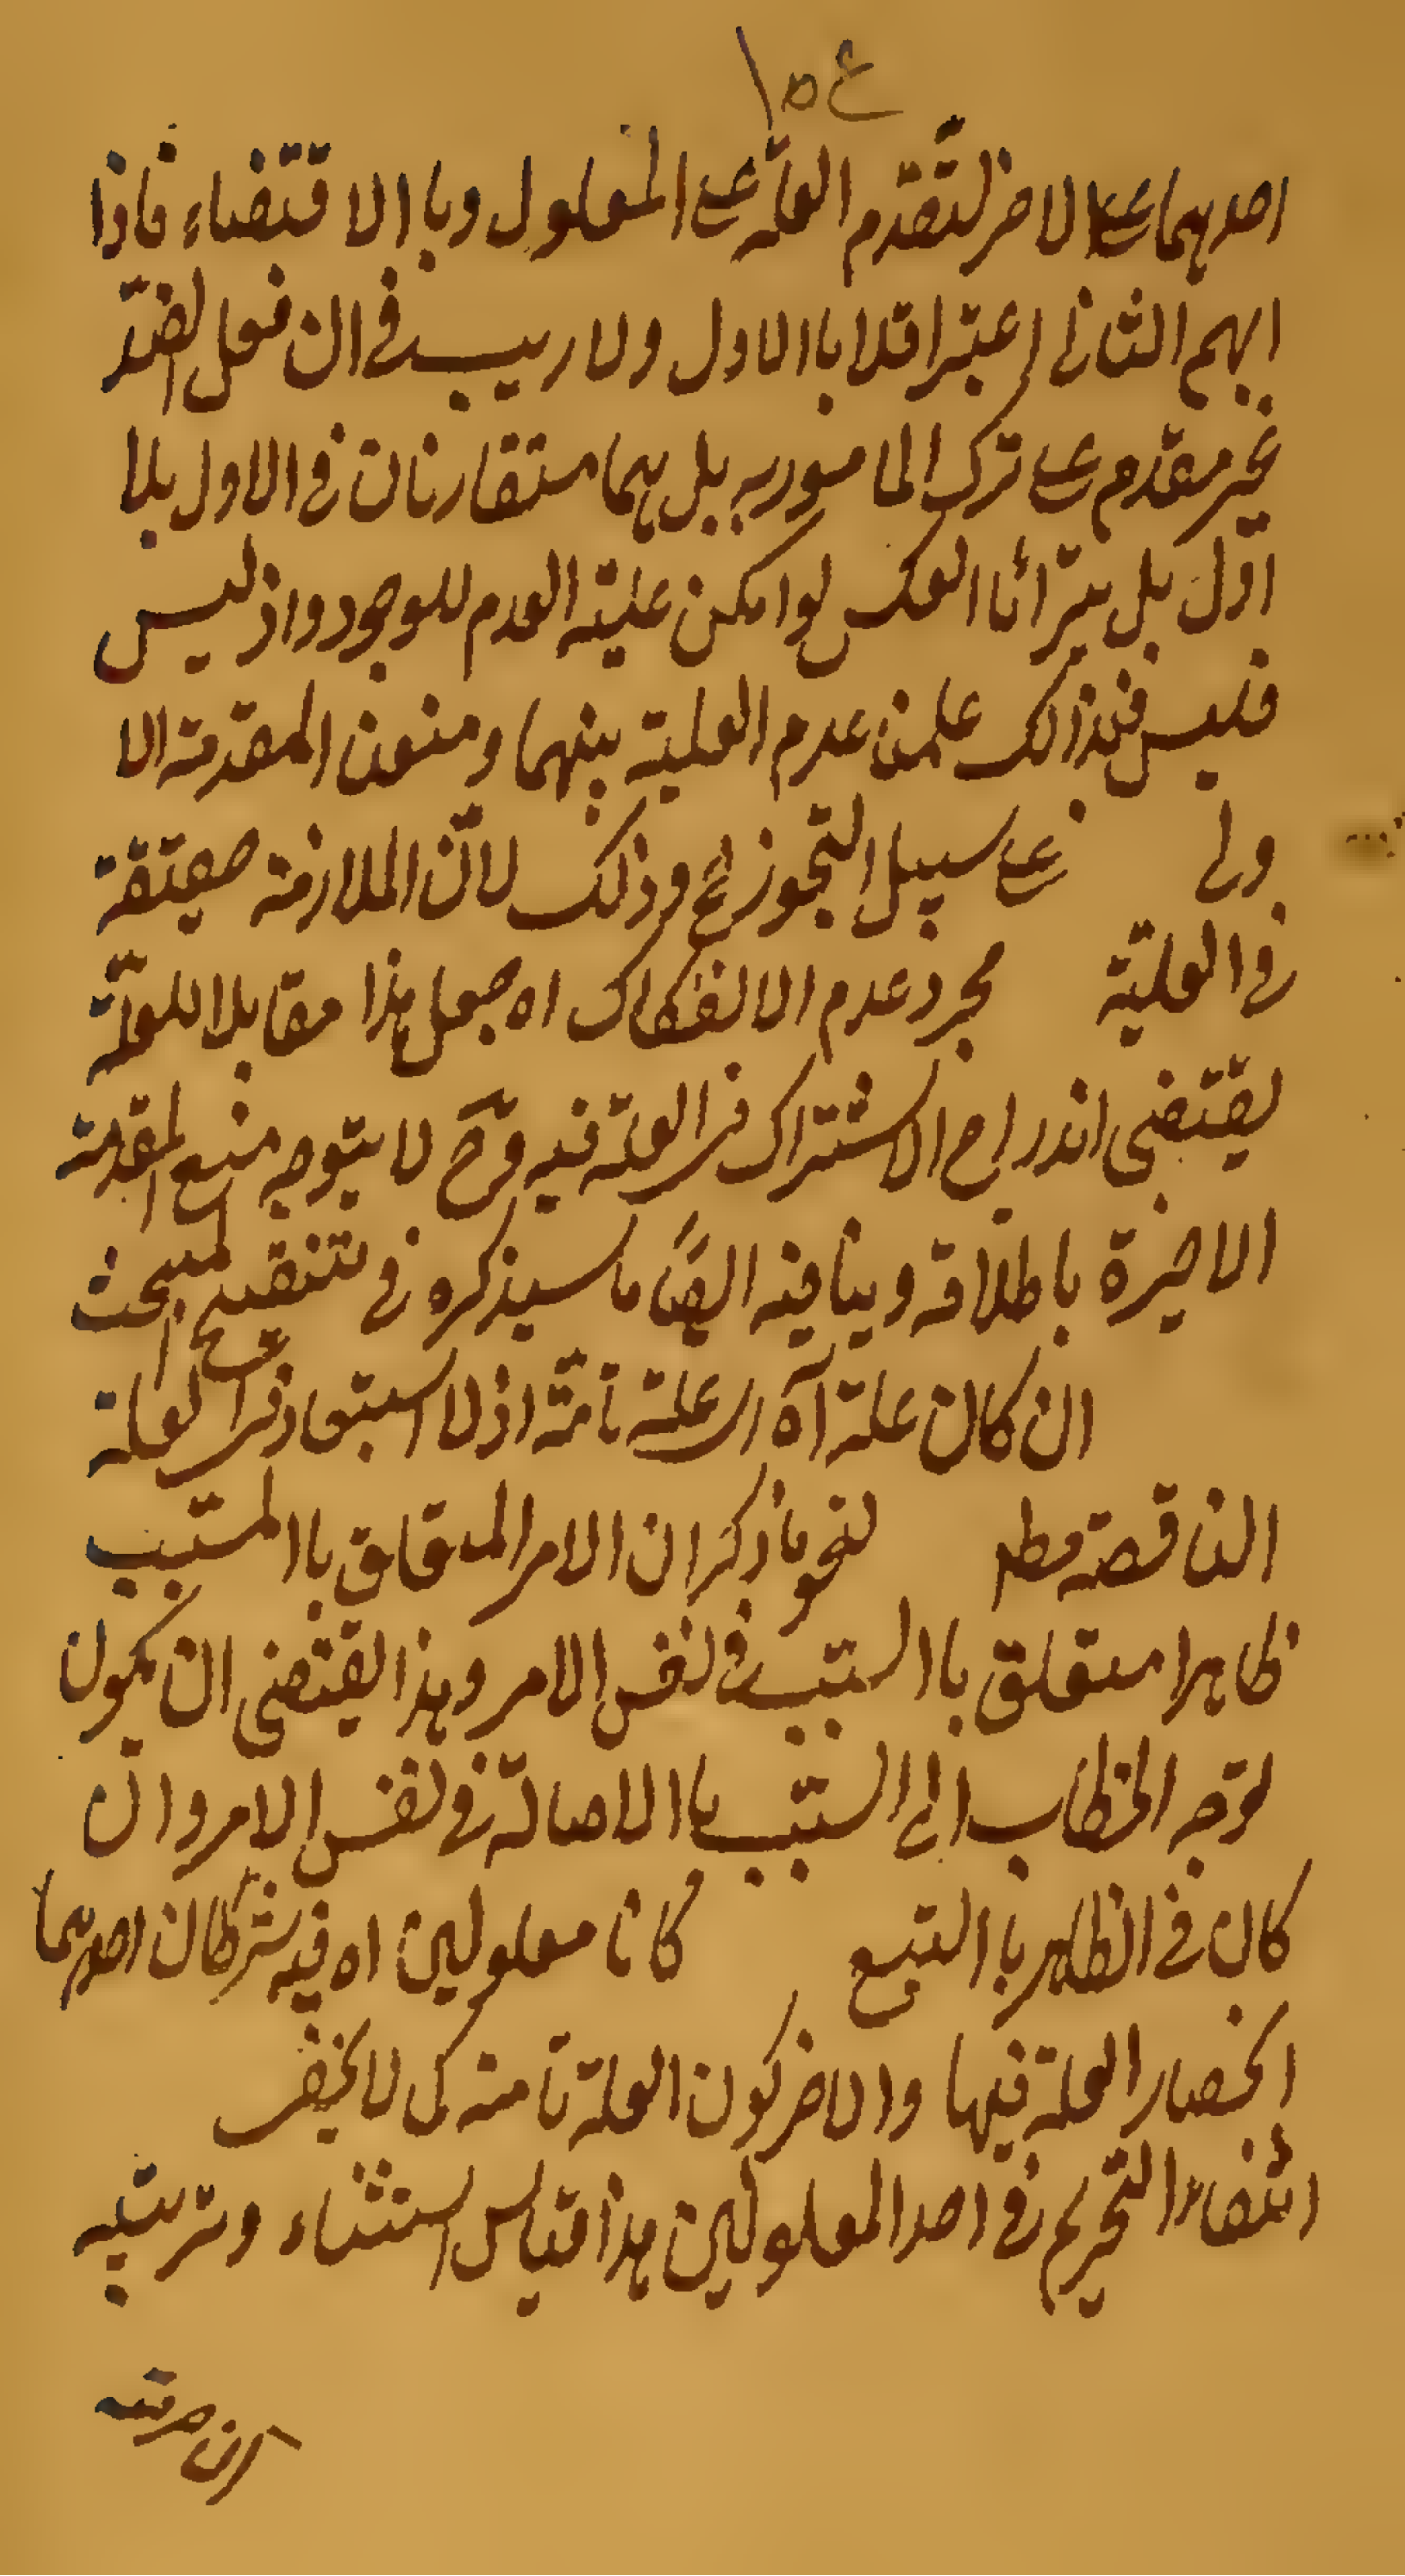 ١٥٤
احدهما على الاخر لتقدم العلة على المعلول وبا الاقتضاء فاذا
ابهم الثانى اعتبر اقلا باالاول ولا ريب فى ان فعل الضد
غير مقدم على ترك المامور به بل هما متقارنان فى الاول بلا
اول بل يترائا العكس لو امكن علية العدم للوجود واذ ليس
فليس فبذالك علمن عدم العلية بينهما ومنعن المقدمة الا
ولى على سبيل التجوز الخ وذلك لان الملازمة حقيقة
فى العلية مجرد عدم الانفكاك اه جعل هذا مقابلا للعلة
يقتضى اندراج الاشتراك فى العلة فيه وح لا يتوجه منع المقدمة
الاخيرة باطلاقه وينافيه ايضا ما سيذكره فى تنقيح المبحث
ان كان علة اه اى علة تامة اذ لا استبعاد فى العلة
الناقصة مطم لنحو ما ذكر ان الامر المتعلق باالمسبب
ظاهرا متعلق باالسبب فى نفس الامر وهذا يقتضى ان يكون
توجه الخطاب الى السبب باالاصالة فى نفس الامر وان
كان فى الظاهر باالتبع كانا معلولين اه فيه شرطان احدهما
انحصار العلة فيها والاخر كون العلة تامة كى لا يخفى
انتفاء التحريم فى احد المعلولين هذا قياس استثناء وترتيبه